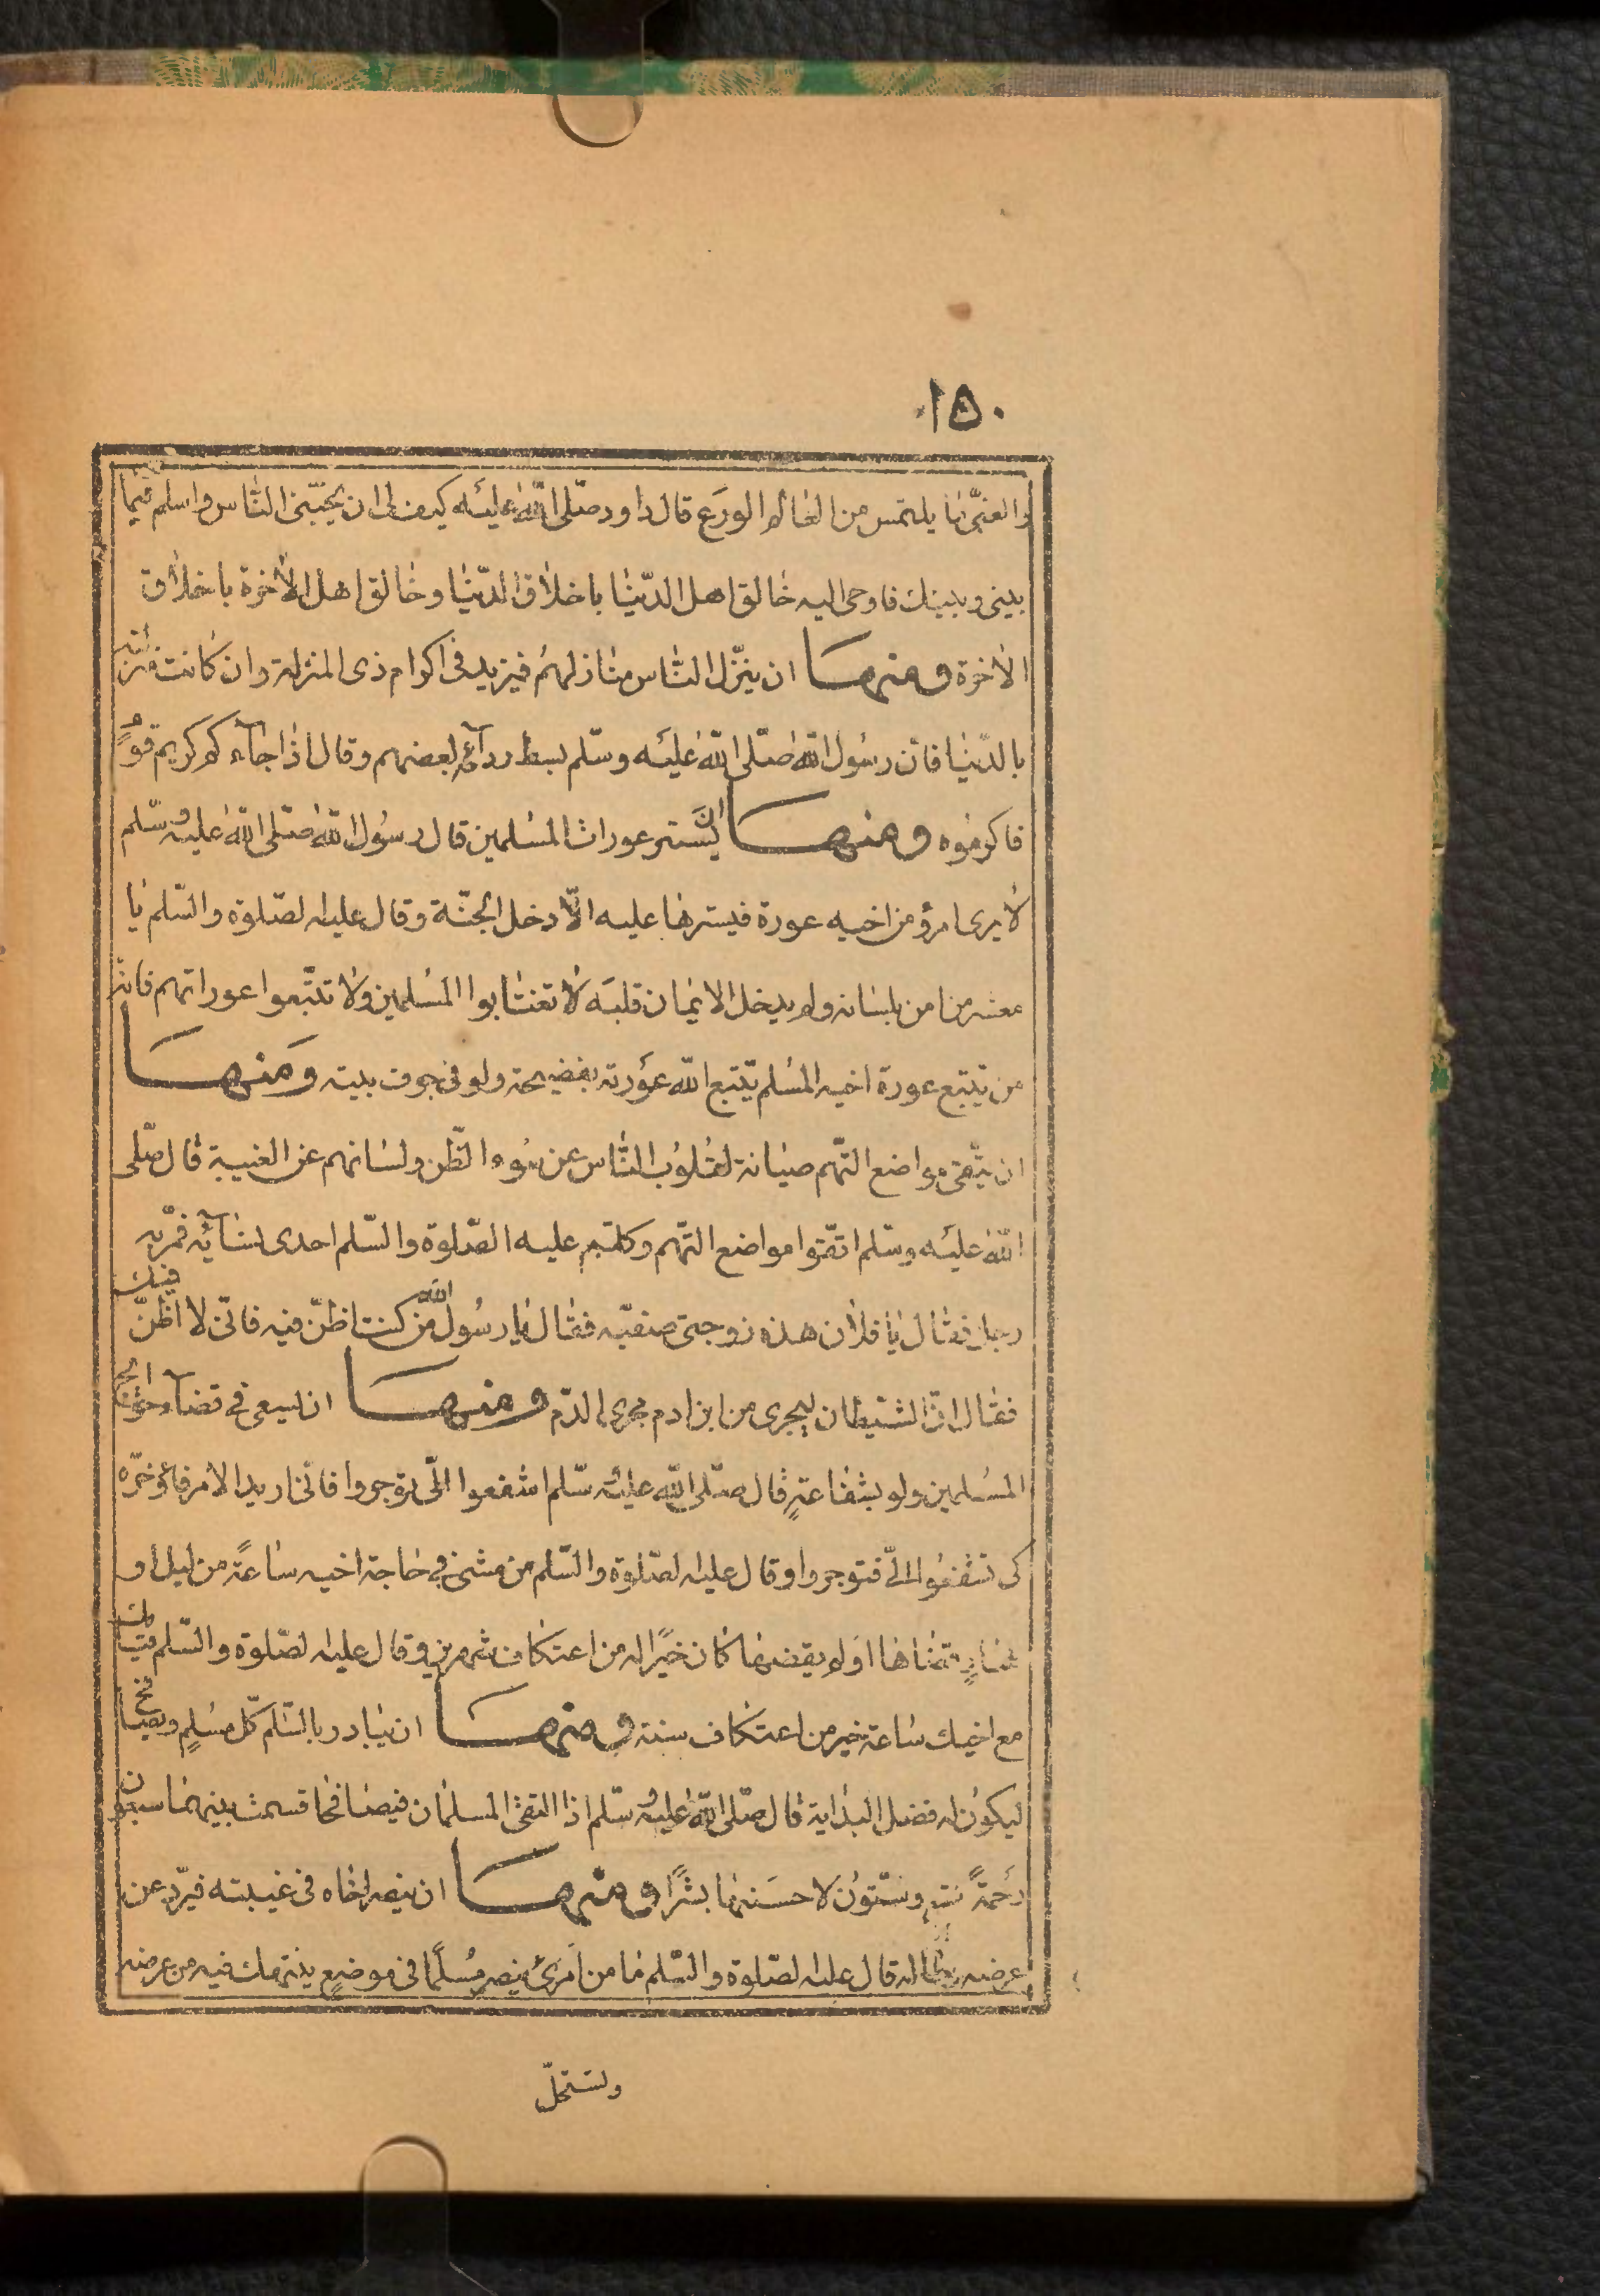 ١٥٠
والغنى ما يلتمس من العالم الورع قال داود صلى الله عليه كيف لى ان يحبنى الناس واسلم فيما
بينى وبينك فاوحى اليه خالق اهل الدنيا باخلاق الدنيا وخالق اهل الاخرة باخلاق
الاخرة ومنها ان ينزل الناس منازلهم فيزيد فى اكرام ذى المنزلة وان كانت منزلته
بالدنيا فان رسول الله صلى الله عليه وسلم بسط ردآئه لبعضهم وقال اذا جآءكم كريم قوم
فاكرموه ومنها ان يستر عورات المسلمين قال رسول الله صلى الله عليه وسلم
لا يرى امرؤ من اخيه عورة فيسترها عليه الا دخل الجنة وقال عليه الصلوة والسلم يا
معشر من امن بلسانه ولم يدخل الايمان قلبه لا تغتابوا المسلمين ولا تتبعوا عوراتهم فانه
من تتبع عورة اخيه المسلم يتتبع الله عورته بفضيحة ولو فى جوف بيته ومنها
ان يتقى مواضع التهم صيانة لقلوب الناس عن سوء الظن ولسانهم عن الغيبة قال صلى
الله عليه وسلم اتقوا مواضع التهم وكلم عليه الصلوة والسلم احدى نسآئه فمر به
رجل فقال يا فلان هذه زوجتى صفيه فقال يا رسول الله من كنت اظن فيه فانى لا اظن فيك
فقال ان الشيطان ليجرى من ابن ادم مجرى الدم ومنها ان يسعى فى قضآء حوائج
المسلمين ولو بشفاعة قال صلى الله عليه وسلم اشفعوا الى توجروا فانى اريد الامر فاوخره
كى تشفعوا الى فتوجروا وقال عليه الصلوة والسلم من مشى فى حاجة اخيه ساعة من ليل او
نهار قضاها او لم يقضها كان خيرا له من اعتكاف شهرين وقال عليه الصلوة والسلم قيامك
مع اخيك ساعة خير من اعتكاف سنة ومنها ان يبادر بالسلم كل مسلم ويصافح
ليكون له فضل البداية قال صلى الله عليه وسلم اذا التقى المسلمان فيصافحا قسمت بينهما سبعون
رحمة تسع وستون لاحسنهما بشرا ومنها ان ينصر اخاه فى غيبته فيرد عن
عرضه وماله قال عليه الصلوة والسلم ما من امرئ ينصر مسلما فى موضع ينتهك فيه من عرضه
ويستحل